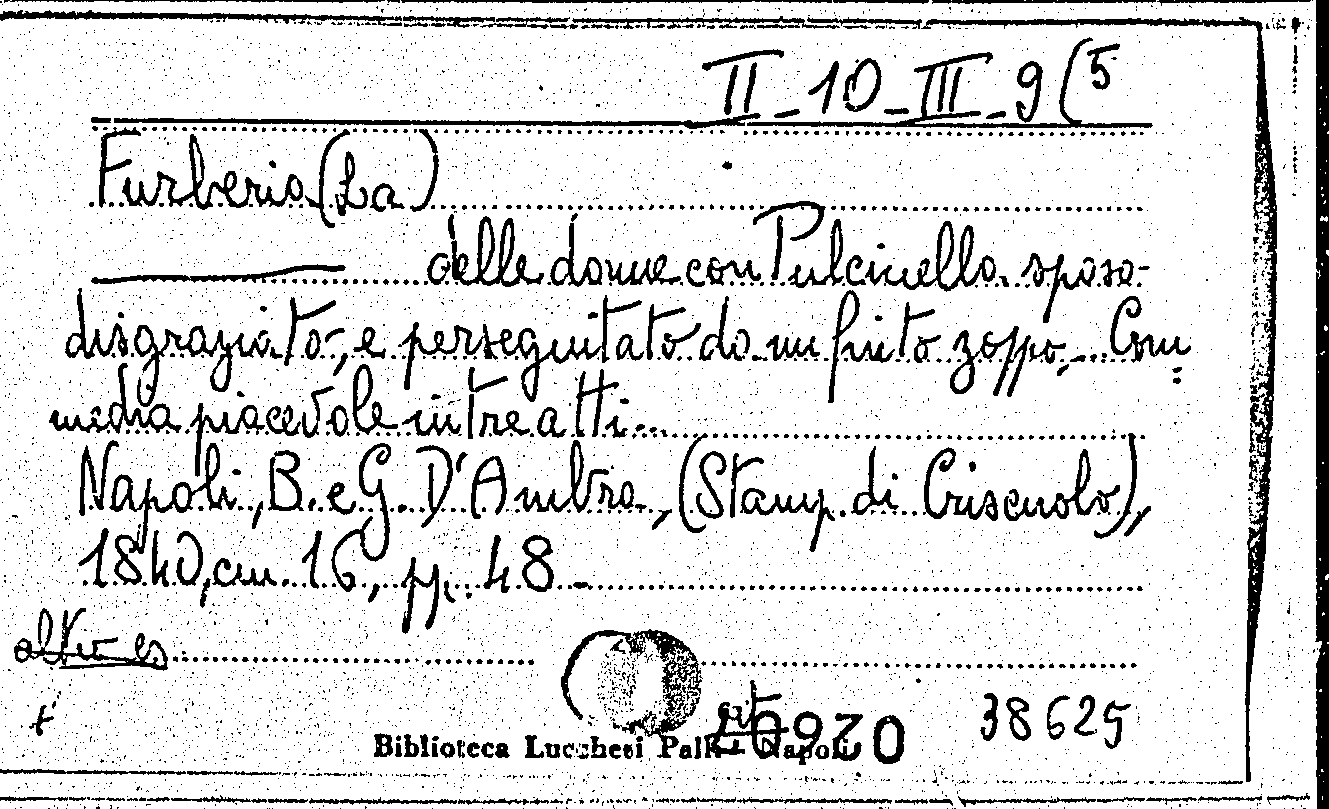 II-10-III-9(5
Furberia (La)
delle donne con Pulcinella sposo
disgraziato, e perseguitato da un finto zoppo. Com=
media piacevole in tre atti...
Napoli, B. e G. D'Ambra, (Stamp. di Criscuolo),
1840, cm. 16, pp. 48 -
38625
Biblioteca Lucchesi Palli - Napoli